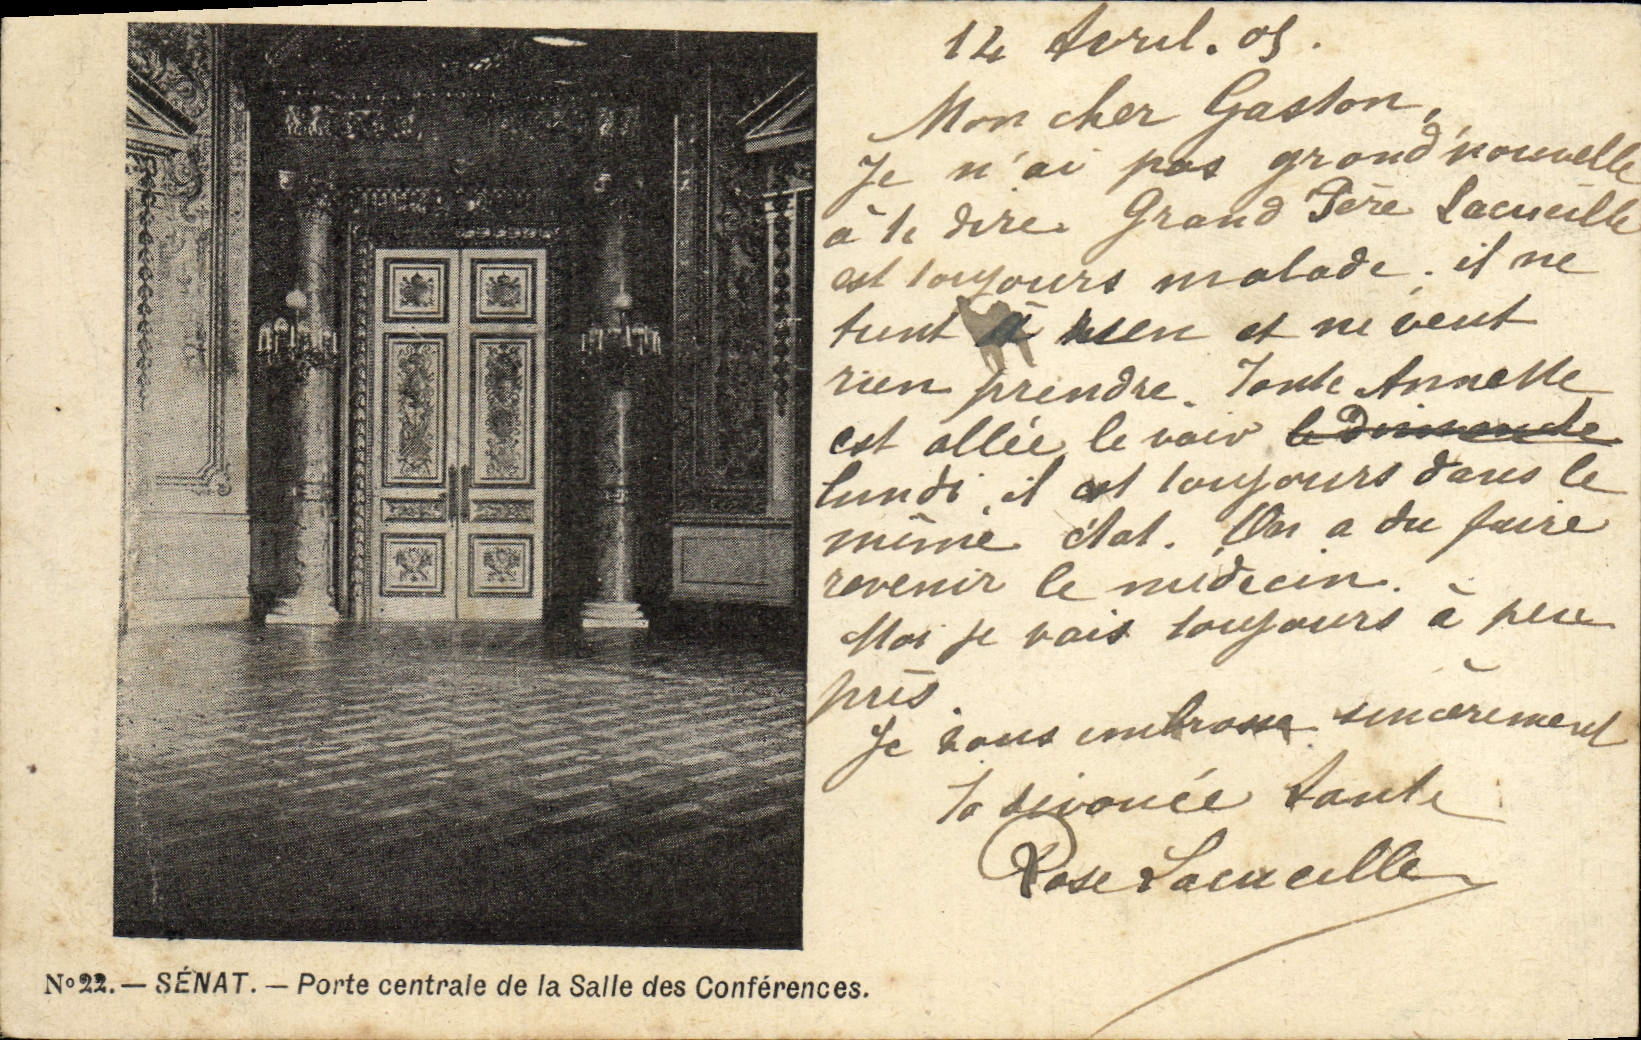 12 Avril. 05.
Mon cher Gaston,
Je n'ai pas grand'nouvelle
à te dire. Grand Père Lacueille
est toujours malade. il ne
tient à rien et ne veut
rien prendre. Tante Annette
est allée le voir le Dimanche
lundi, il est toujours dans le
même état. On a du faire
revenir le médecin.
Moi je vais toujours à peu
près.
Je vous embrasse sincèrement
Ta dévouée tante
Rose Lacueille
Nº 22. — SÉNAT. — Porte centrale de la Salle des Conférences.